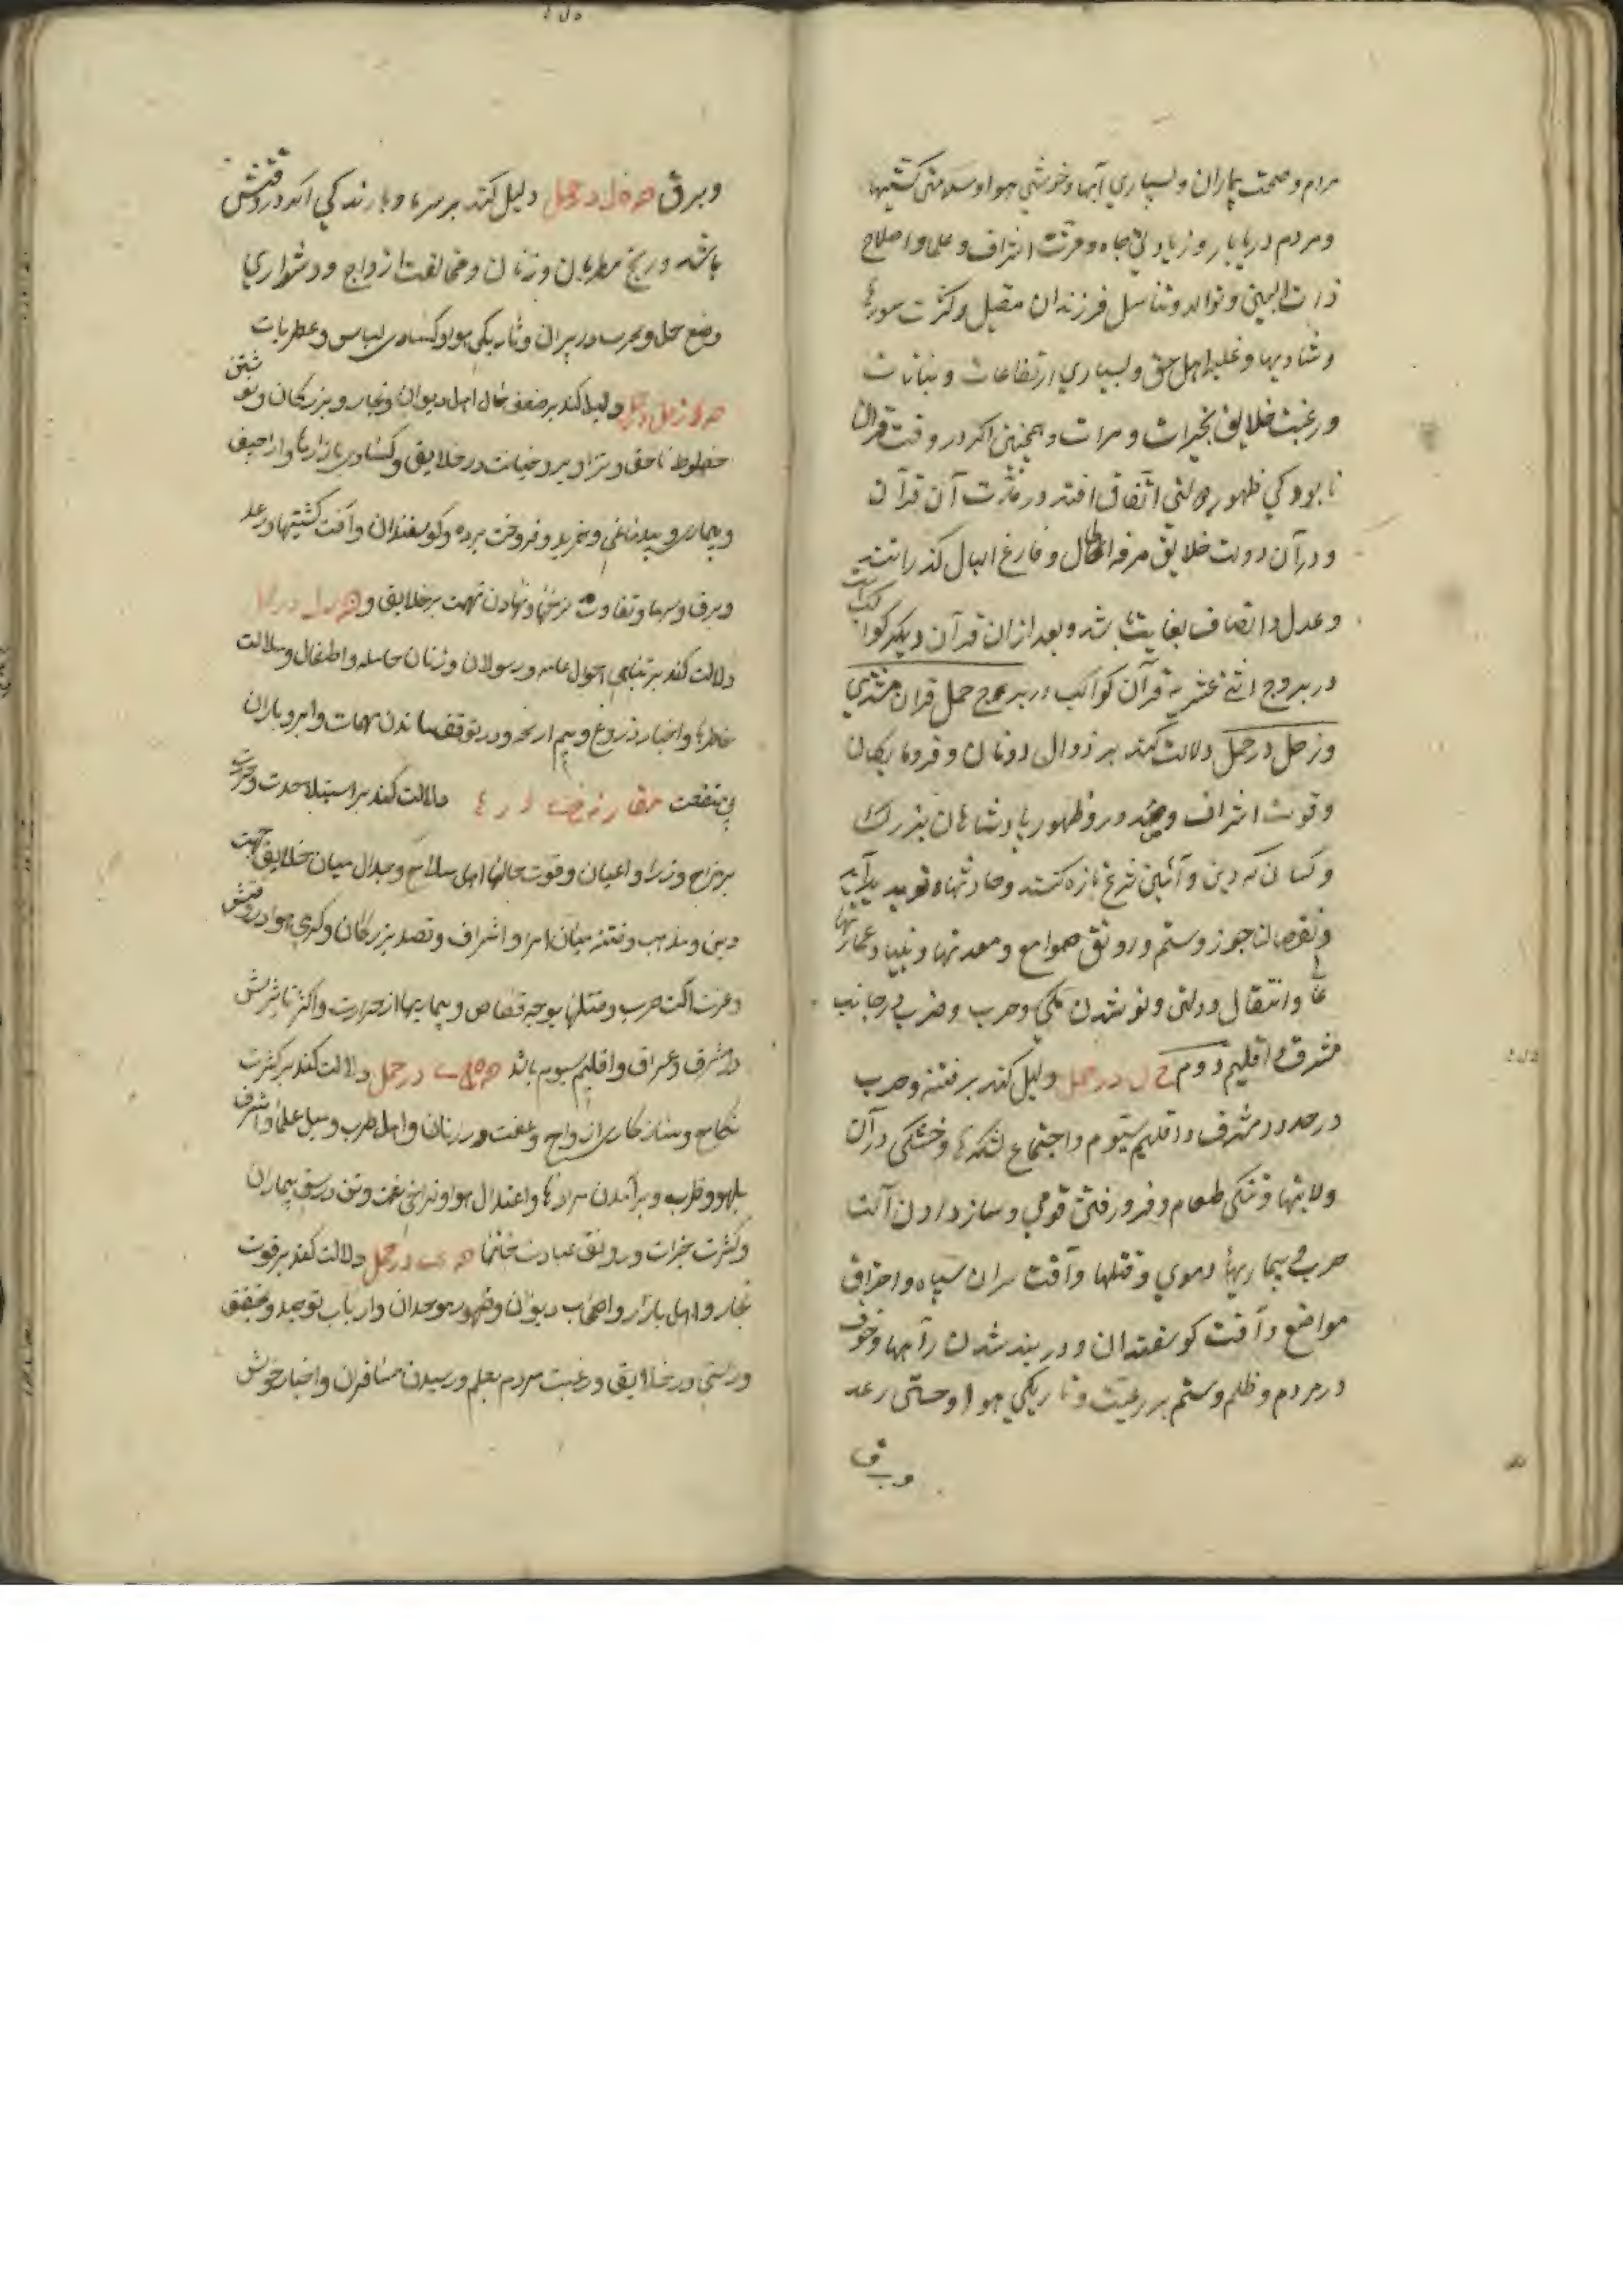 مردم و صحت بیماران و بسیاري آبها و خوشي هوا و سلامتی کشتیها
و مردم دریابار و زیادتی جاه و مرتبت اشراف و علما و اصلاح
ذات البین و توالد و تناسل فرزندان مقبل و کثرت سورها
و شادیها و غلبه اهل حق و بسیاري ارتفاعات و نباتات
و رغبت خلایق بخیرات و مبرات و همچنین اکر در وقت قران
نابودکي ظهور دولتی اتفاق افتد در مدت آن قرآن
و در آن دولت خلایق مرفه الحال و فارغ البال کذرانند
و عدل و انصاف بغایت باشد و بعد از آن قرآن دیکر کواکب
در بروج اثنی عشریه قرآن کواکب در برج حمل قران مشتري
و زحل در حمل دلالت کند بر زوال دونان و فرومایکان
و قوت اشراف و ظهور پادشاهان بزرک
و کسان که دین و آئین شرع تازه کنند و حادثهاء پدید آید
و نقصان جور و ستم و رونق صوامع و معدنها و بنیاد عمارتها
و انتقال دولتی و نو شدن ملکي و حرب و ضرب در جانب
مشرق و اقلیم دوم ح ل در حمل دلیل کند بر فتنه و حرب
در حدود مشرق و اقلیم سیوم و اجتماع لشکرها و خشکی در آن
ولایتها و تنکی طعام و فرو رفتن قومي و ساز دادن آلت
حرب و بیماریهاء دموي و قتلها و آفت سران سپاه و احتراق
مواضع و آفت کوسفندان و در بند شدن راهها و خوف
در مردم و ظلم و ستم بر رعیت و تاریکي هوا و حتی رعد
و برق
و برق ه ل در حمل دلیل کند بر سرما و بارندکي اکر در وقتش
باشد و رنج مطربان و زنان و مخالفت ازواج و دشواري
وضع حمل و جرب در پیران و تاریکي هوا و کسادی لباس و عطریات
زحل در حمل دلیل کند بر ضعف حال اهل دیوان و تجار و بزرکان و نوشتن
خطوط ناحق و تزاویر و خیانت در خلایق و کسادی بازارها و اراجیف
و بیماری و خرید و فروخت برده و کوسفندان و آفت کشتیها و رعد
و برق و سرما و تفاوت نرخها و نهادن تهمت بر خلایق و در
دلالت کند بر تباهي احوال عامه و رسولان و زنان حامله و اطفال و ملالت
خاطرها و اخبار دروغ و در توقف ماندن مهمات و ابر و باران
بی منفعت مقارنه دلالت کند بر استیلا حدت و حرب
بر مزاج وزرا و اعیان و قوت حالهاء اهل سلاح و جدال میان خلایق بجهت
دین و مذهب و فتنه میان امرا و اشراف و قصد بزرکان و کرمي هوا در وقتش
و عزت آلت حرب و قتلها بوجه قصاص و بیماریها از حرارت و اکثر تاثیرش
در مشرق و عراق و اقلیم سیوم باشد در حمل دلالت کند بر کثرت
نکاح و سازکاری ازواج و عفت در زنان و اهل طرب و میل علما و اشراف
بلهو و طرب و برآمدن مرادها و اعتدال هوا و فراخی نعمت و تن درستی بیماران
و کثرت خیرات و رونق عبادت خانها در حمل دلالت کند بر قوت
تجار و اهل بازار و اصحاب دیوان و ظهور موحدان و ارباب توحید و تحقیق
و راستی در خلایق و رغبت مردم بعلم و رسیدن مسافران و اخبار خوش